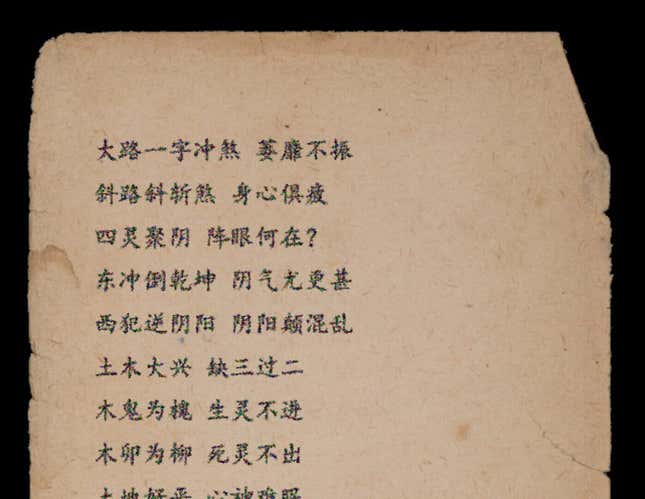 大路一字冲煞 萎靡不振
斜路斜斩煞 身心俱疲
四灵聚阴 阵眼何在?
东冲倒乾坤 阴气尤更甚
西犯逆阴阳 阴阳颠混乱
土木大兴 缺三过二
木鬼为槐 生灵不进
木卯为柳 死灵不出
土地 心神